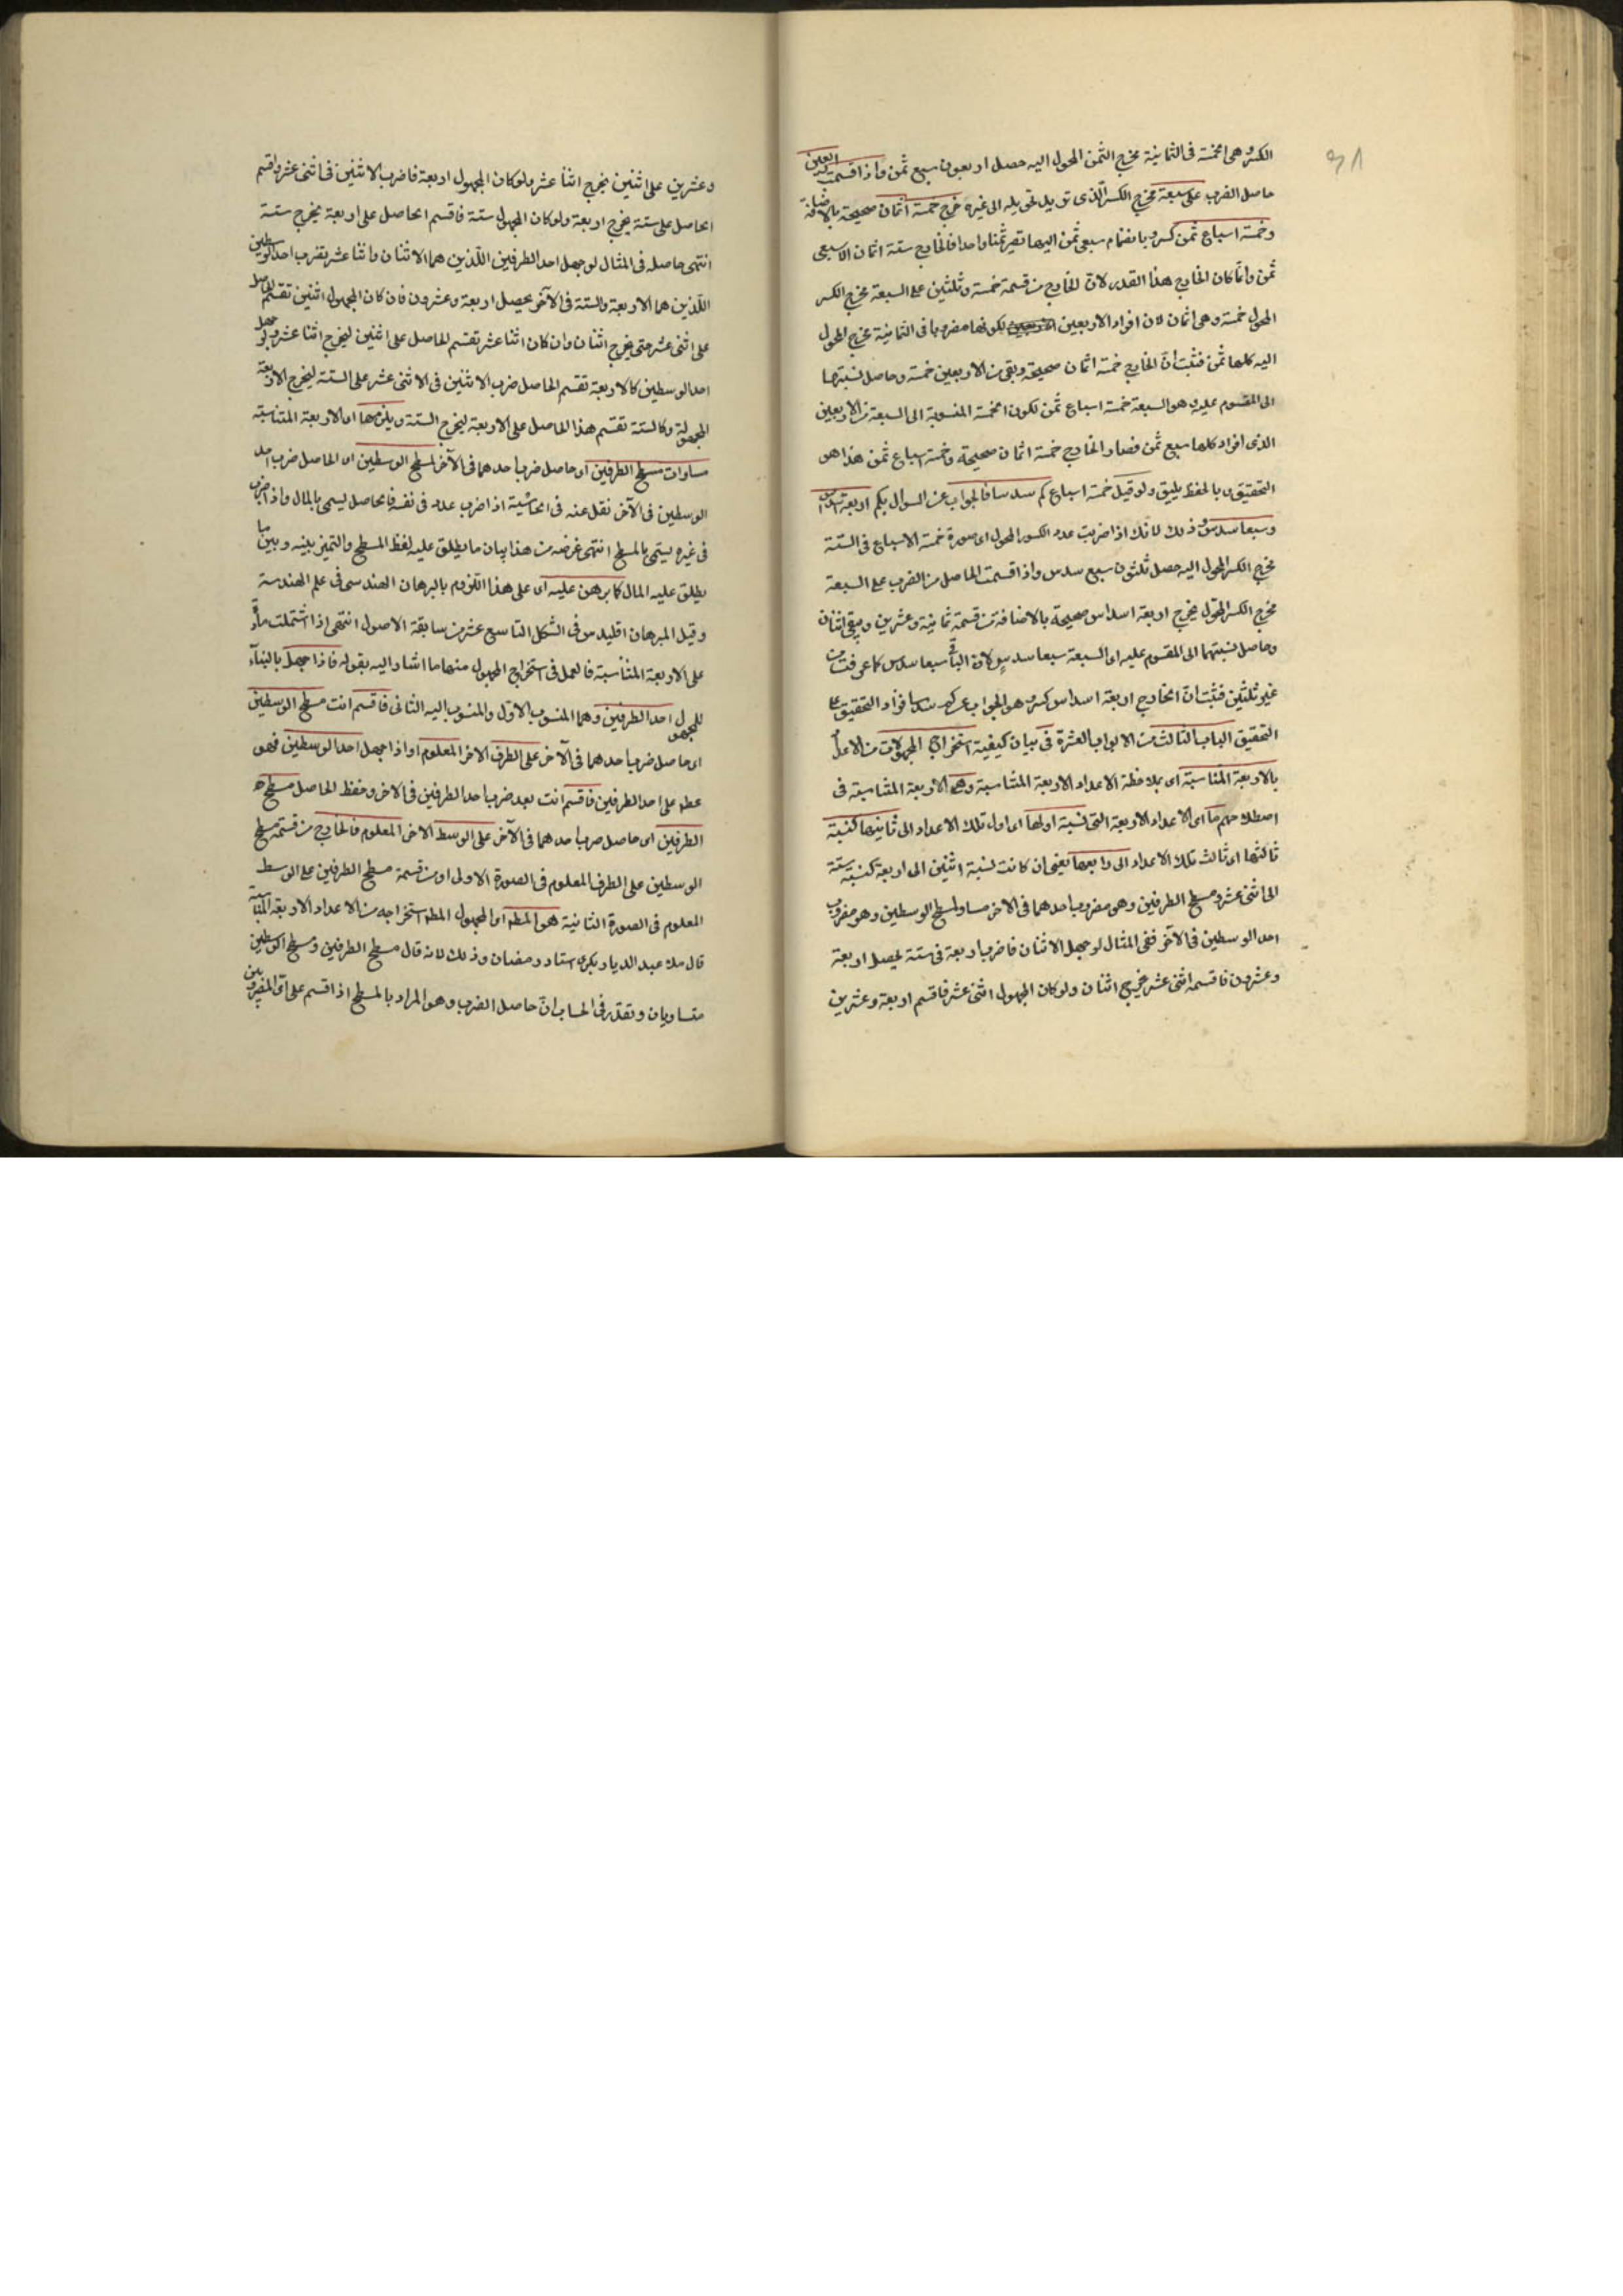 ٣٨
الكسر وهى الخمسة فى الثمانية مخرج الثمن المحول اليه حصل اربعون سبع ثمن واذا قسمت اربعين
حاصل الضرب على سبعة مخرج الكسر الذى تريد تحويله الى غيره خرج خمسة اثمان صحيحة بالاضافة
وخمسة اسباع ثمن كسر وبانضمام سبعى ثمن اليها تصير ثمنا واحدا فالخارج ستة اثمان الا سبعى
ثمن وانما كان الخارج هذا القدر لان الخارج من قسمة خمسة وثلثين على السبعة مخرج الكسر
المحول خمسة وهى اثمان لان افراد الاربعين لكونها مضروبا فى الثمانية مخرج المحول
اليه كلها ثمن فثبت ان الخارج خمسة اثمان صحيحة وبقى من الاربعين خمسة وحاصل نسبتها
الى المقسوم عليه وهو السبعة خمسة اسباع ثمن لكون الخمسة المنسوبة الى السبعة من الاربعين
الذى افراد كلها سبع ثمن فصار الخارج خمسة اثمان صحيحة وخمسة اسباع ثمن هذا هو
التحقيق بالحفظ يليق ولو قيل خمسة اسباع كم سدسا فالجواب عن السؤال بكم اربعة اسداس
وسبعا سدس وذلك لانك اذا ضربت عدد الكسور المحول اى صورة خمسة الاسباع فى الستة
مخرج الكسر المحول اليه حصل ثلثون سبع سدس واذا قسمت الحاصل من الضرب على السبعة
مخرج الكسر المحول يخرج اربعة اسداس صحيحة بالاضافة من قسمة ثمانية وعشرين وبقى اثنان
وحاصل نسبتهما الى المقسوم عليه اى السبعة سبعا سدس لان الباقى سبعا سدس كما عرفت من
غير ثلثين فثبت ان الخارج اربعة اسداس كسر وهو الجواب عن كم سدسا فزاد التحقيق على
التحقيق الباب الثالث من الابواب العشرة فى بيان كيفية استخراج المجهولات من الاعداد
بالاربعة المتناسبة اى بملاحظة الاعداد الاربعة المتناسبة وهى الاربعة المتناسبة فى
اصطلاحهم ما اى الاعداد الاربعة التى نسبة اولها اى اول تلك الاعداد الى ثانيها كنسبة
ثالثها اى ثالث تلك الاعداد الى رابعها يعنى ان كانت نسبة اثنين الى اربعة كنسبة ستة
الى اثنى عشر ومسطح الطرفين وهو مضروب احدهما فى الاخر مساو لمسطح الوسطين وهو مضروب
احد الوسطين فى الآخر ففى المثال لو جهل الاثنان فاضرب اربعة فى ستة يحصل اربعة
وعشرون فاقسمه اثنى عشر يخرج اثنان ولو كان المجهول اثنى عشر فاقسم اربعة وعشرين
وعشرين على اثنين يخرج اثنا عشر ولو كان المجهول اربعة فاضرب الاثنين فى اثنى عشر واقسم
الحاصل على ستة يخرج اربعة ولو كان المجهول ستة فاقسم الحاصل على اربعة يخرج ستة
انتهى حاصله فى المثال لو جهل احد الطرفين اللذين هما الاثنان واثنا عشر يضرب احد الوسطين
اللذين هما الاربعة والستة فى الآخر يحصل اربعة وعشرون فان كان المجهول اثنين تقسم الحاصل
على اثنى عشر حتى يخرج اثنان وان كان اثنا عشر تقسم الحاصل على اثنين ليخرج اثنا عشر ولو جهل
احد الوسطين كالاربعة تقسم الحاصل ضرب الاثنين فى الاثنى عشر على الستة ليخرج الاربعة
المجهولة وكالستة تقسم هذا الحاصل على الاربعة ليخرج الستة ويلزمها اى الاربعة المتناسبة
مساوات مسطح الطرفين اى حاصل ضرب احدهما فى الآخر لمسطح الوسطين اى الحاصل ضرب احد
الوسطين فى الآخر نقل عنه فى الحاشية اذا ضرب عدد فى نفسه فالحاصل يسمى بالمال واذا ضرب
فى غيره يسمى بالمسطح انتهى غرضه من هذا بيان ما يطلق عليه لفظ المسطح والتميز بينه وبين ما
يطلق عليه المال كما برهن عليه اى على هذا اللزوم بالبرهان الهندسى فى علم الهندسة
وقيل المبرهان اقليدس فى الشكل التاسع عشر من سابقة الاصول انتهى اذا اشتملت
على الاربعة المتناسبة فالعمل فى استخراج المجهول منها ما اشار اليه بقوله فاذا جهل بالبناء
للمجهول احد الطرفين وهما المنسوب الاول والمنسوب اليه الثانى فاقسم انت مسطح الوسطين
اى حاصل ضرب احدهما فى الآخر على الطرف الاخر المعلوم او اذا جهل احد الوسطين فهو
عطف على احد الطرفين فاقسم انت بعد ضرب احد الطرفين فى الاخر وحفظ الحاصل مسطح
الطرفين اى حاصل ضرب احدهما فى الآخر على الوسط الاخر المعلوم فالخارج من قسمة مسطح
الوسطين على الطرف المعلوم فى الصورة الاولى او من قسمة مسطح الطرفين على الوسط
المعلوم فى الصورة الثانية هو المط اى المجهول المط استخراجه من الاعداد الاربعة المتناسبة
قال عبد الديار بكرى استاد رمضان وذلك لانه قال مسطح الطرفين ومسطح الوسطين
متساويان وتقرر فى الحساب ان حاصل الضرب وهو المراد بالمسطح اذا قسم على احد المضروبين